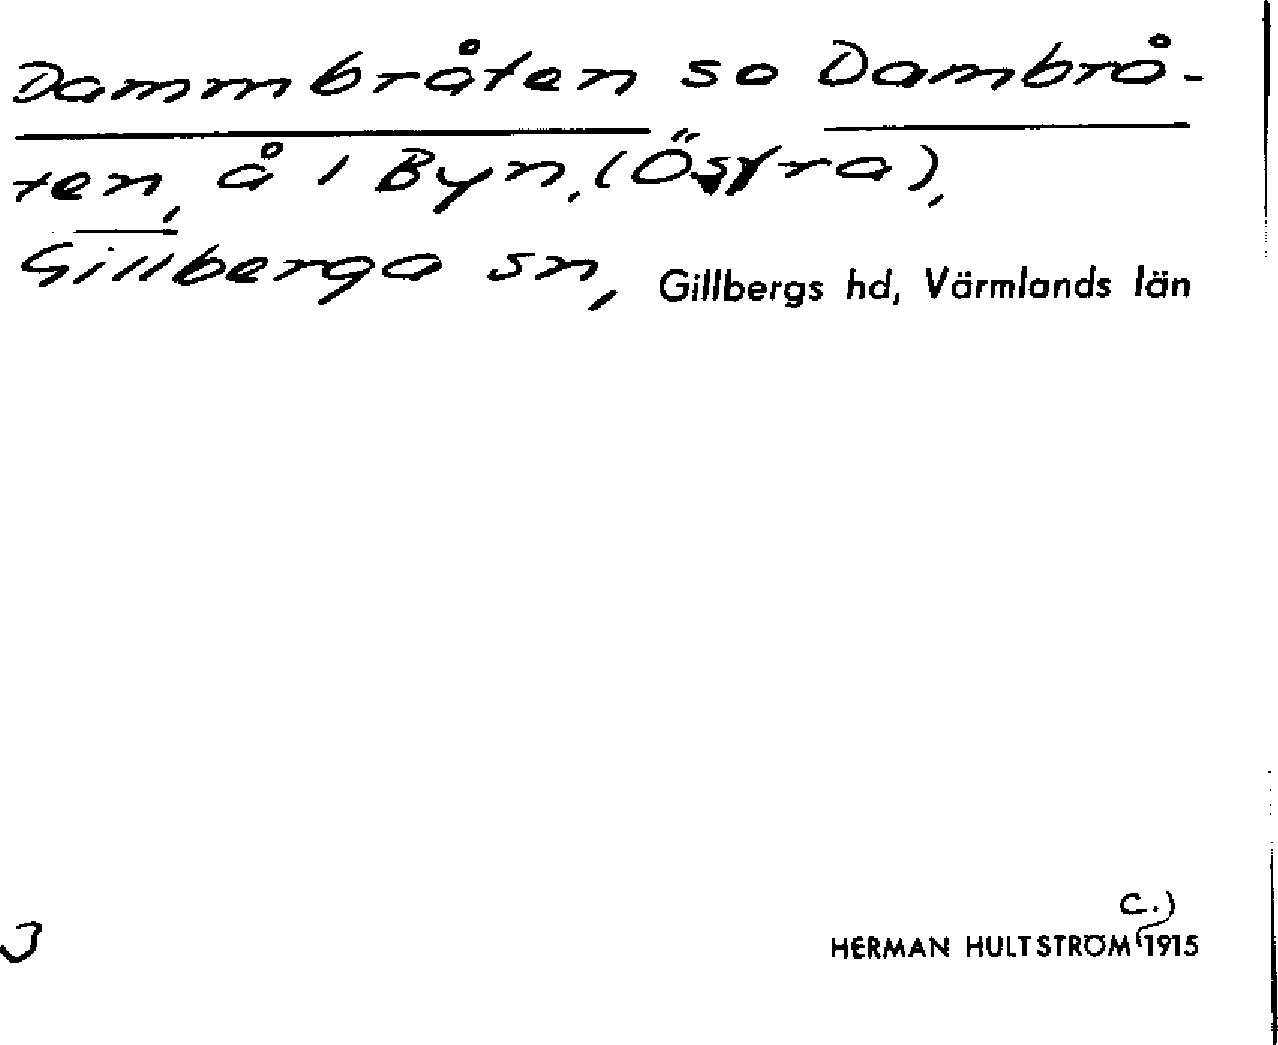 Dammbråten so Dambrå-
ten, å i Byn, (Östra),
Gillberga sn, Gillbergs hd, Värmlands län
3
C.)
HERMAN HULTSTRÖM 1915